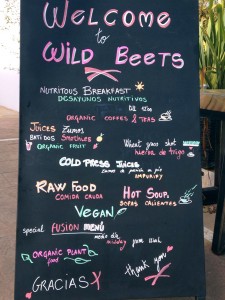 Welcome
to
Wild Beets
Nutritous Breakfast
Desayunos Nutritivos
Organic Coffes & Teas
Juices Zumos
Batidos Smoothies
Organic Fruit
Wheat grass shot
hierba de trigo
Cold Press Juices
Raw Food
Comida Cruda
Hot Soup
Sopas Calientes
Vegan
special Fusion Menú
Organic Plant
food
Gracias
thank you